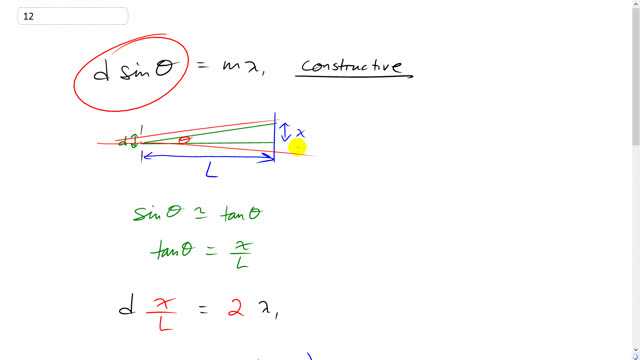 12
d sinθ = mλ, constructive
d θ x
L
sinθ ≃ tanθ
tanθ = x/L
d x/L = 2 λ,